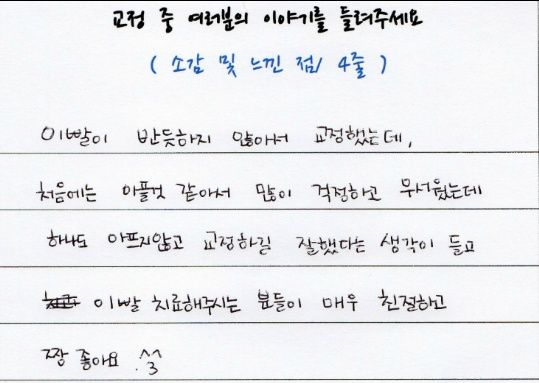 교정 중 여러분의 이야기를 들려주세요
( 소감 및 느낀 점/ 4줄 )
이빨이 반듯하지 않아서 교정했는데,
처음에는 아플것 같아서 많이 걱정하고 무서웠는데
하나도 아프지않고 교정하길 잘했다는 생각이 들고
이빨 치료해주시는 분들이 매우 친절하고
짱 좋아요 ^3^